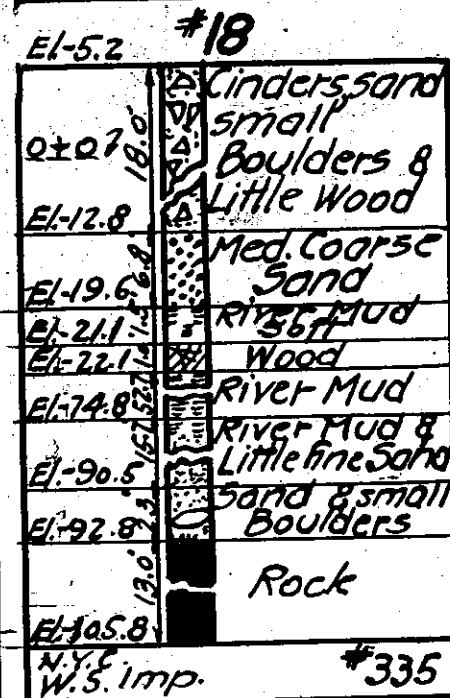 #18
El.-5.2
Cinders, sand
small
0±0?
18.0'
Boulders &
Little Wood
El.-12.8
Med. Coarse
6.8'
Sand
El.-19.6
River Mud
1.5'
Soft
El.-21.1
Wood
El.-22.1
River Mud
52.7'
El.-74.8
River Mud &
15.7'
Little fine Sand
El.-90.5
Sand & small
2.3'
Boulders
El.-92.8
13.0'
Rock
El.-105.8
N.Y.C.
W.S. Imp.
#335